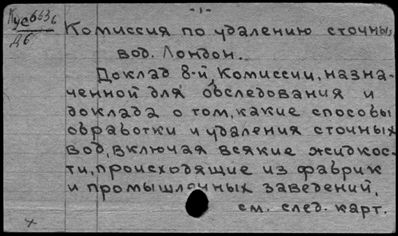 -1-
Кус 6636
Д6
Комиссия по удалению сточных
вод. Лондон.
Доклад 8-й, Комиссии, назна-
ченной для обследования и
доклада о том, какие способы
обработки и удаления сточных
вод, включая всякие жидкос-
ти, происходящие из фабрик
и промышленных заведений.
см. след. карт.